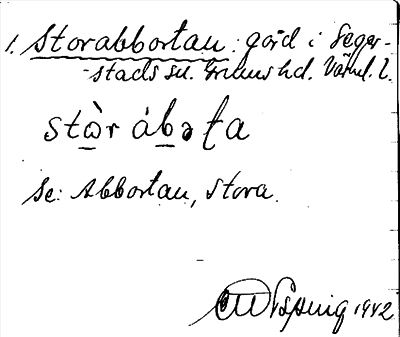 1. Storabbortan: gård i Seger-
stads sn. Grums hd. Värml. l.
stὼr ábəʈa
Se: Abbortan, Stora.
1942